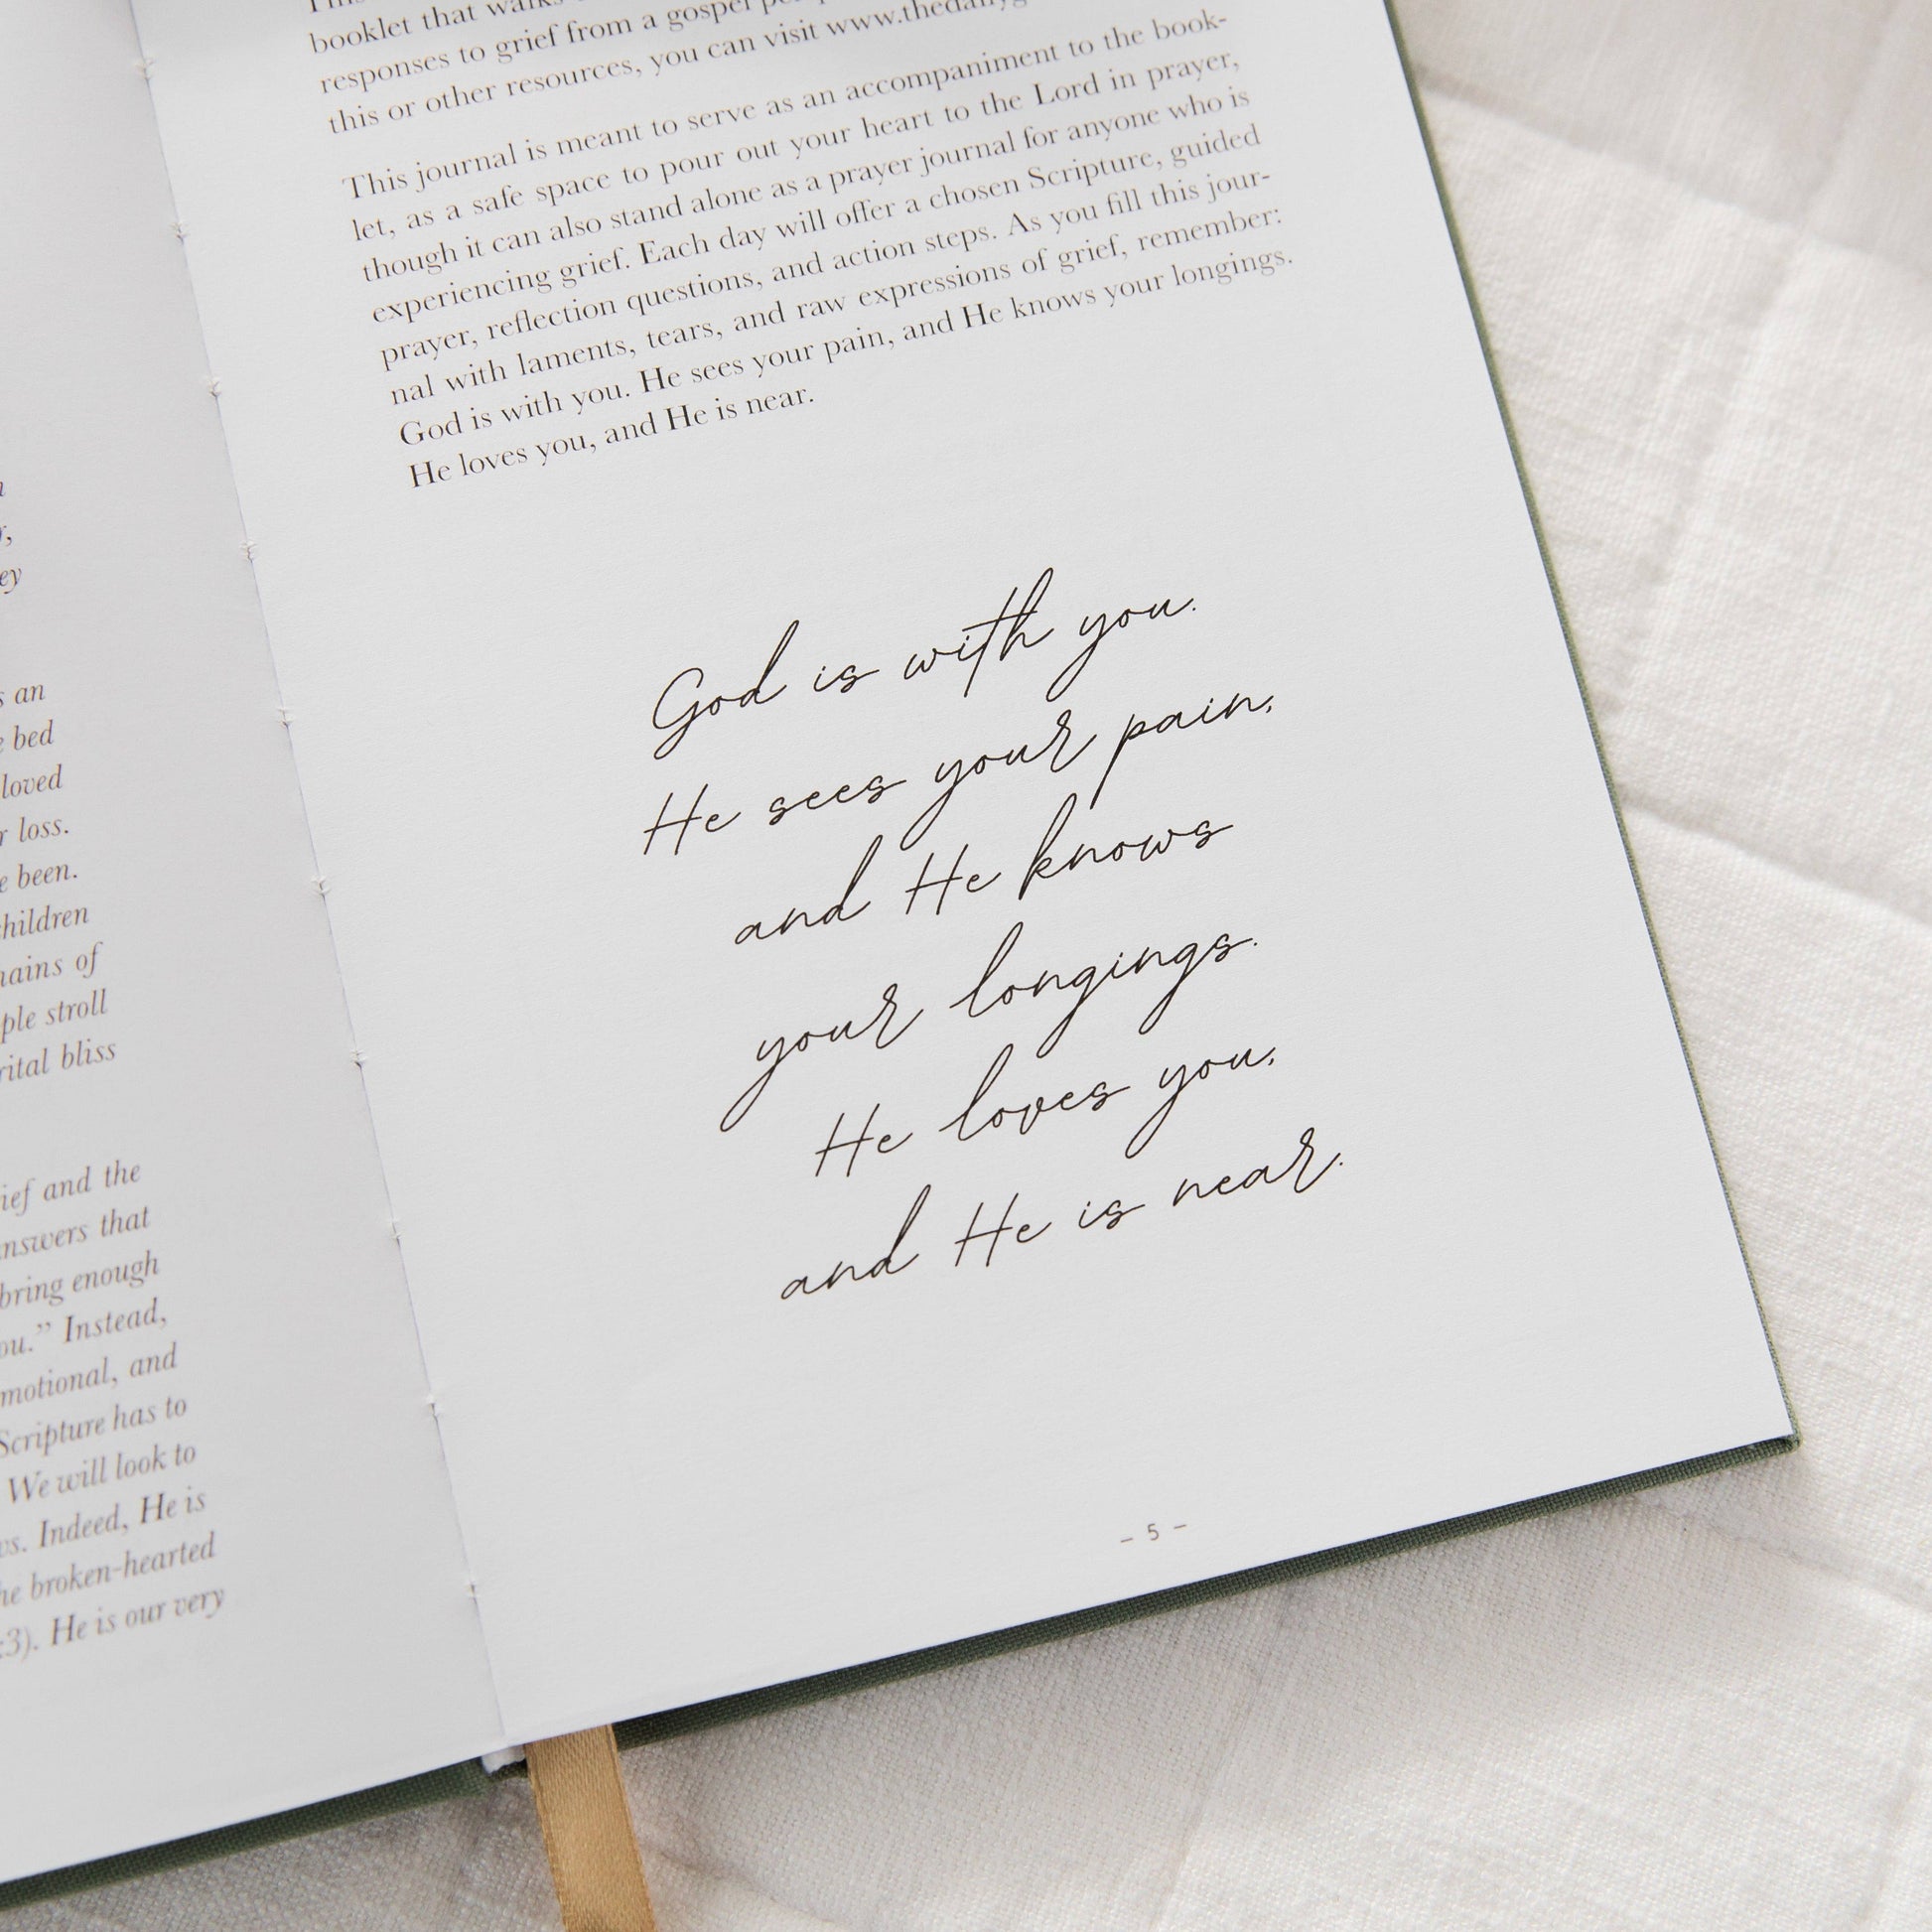 n
r,
ey
s an
e bed
loved
r loss.
e been.
children
hains of
ple stroll
rital bliss
ief and the
nswers that
bring enough
ou.” Instead,
motional, and
Scripture has to
We will look to
ws. Indeed, He is
he broken-hearted
:3). He is our very
booklet that walks
responses to grief from a gospel
this or other resources, you can visit www.thedailyg
This journal is meant to serve as an accompaniment to the book-
let, as a safe space to pour out your heart to the Lord in prayer,
though it can also stand alone as a prayer journal for anyone who is
experiencing grief. Each day will offer a chosen Scripture, guided
prayer, reflection questions, and action steps. As you fill this jour-
nal with laments, tears, and raw expressions of grief, remember:
God is with you. He sees your pain, and He knows your longings.
He loves you, and He is near.
God is with you.
He sees your pain,
and He knows
your longings.
He loves you,
and He is near.
– 5 –